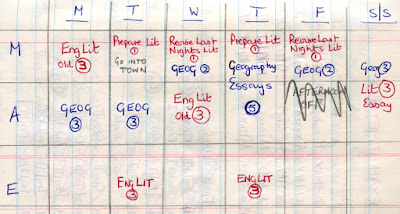 M T W T F S/S
M
Eng Lit
Old ③
Prepare Lit
①
GO INTO
TOWN
Revise Last
Nights Lit
①
GEOG ②
Prepare Lit
①
Geography
Essays
⑤
Revise Last
Nights Lit
①
GEOG ②
Geog ②
Lit ③
Essay
A
GEOG
③
GEOG
③
Eng Lit
Old ③
AFTERNOON
OFF
E
ENG LIT
③
ENG LIT
③